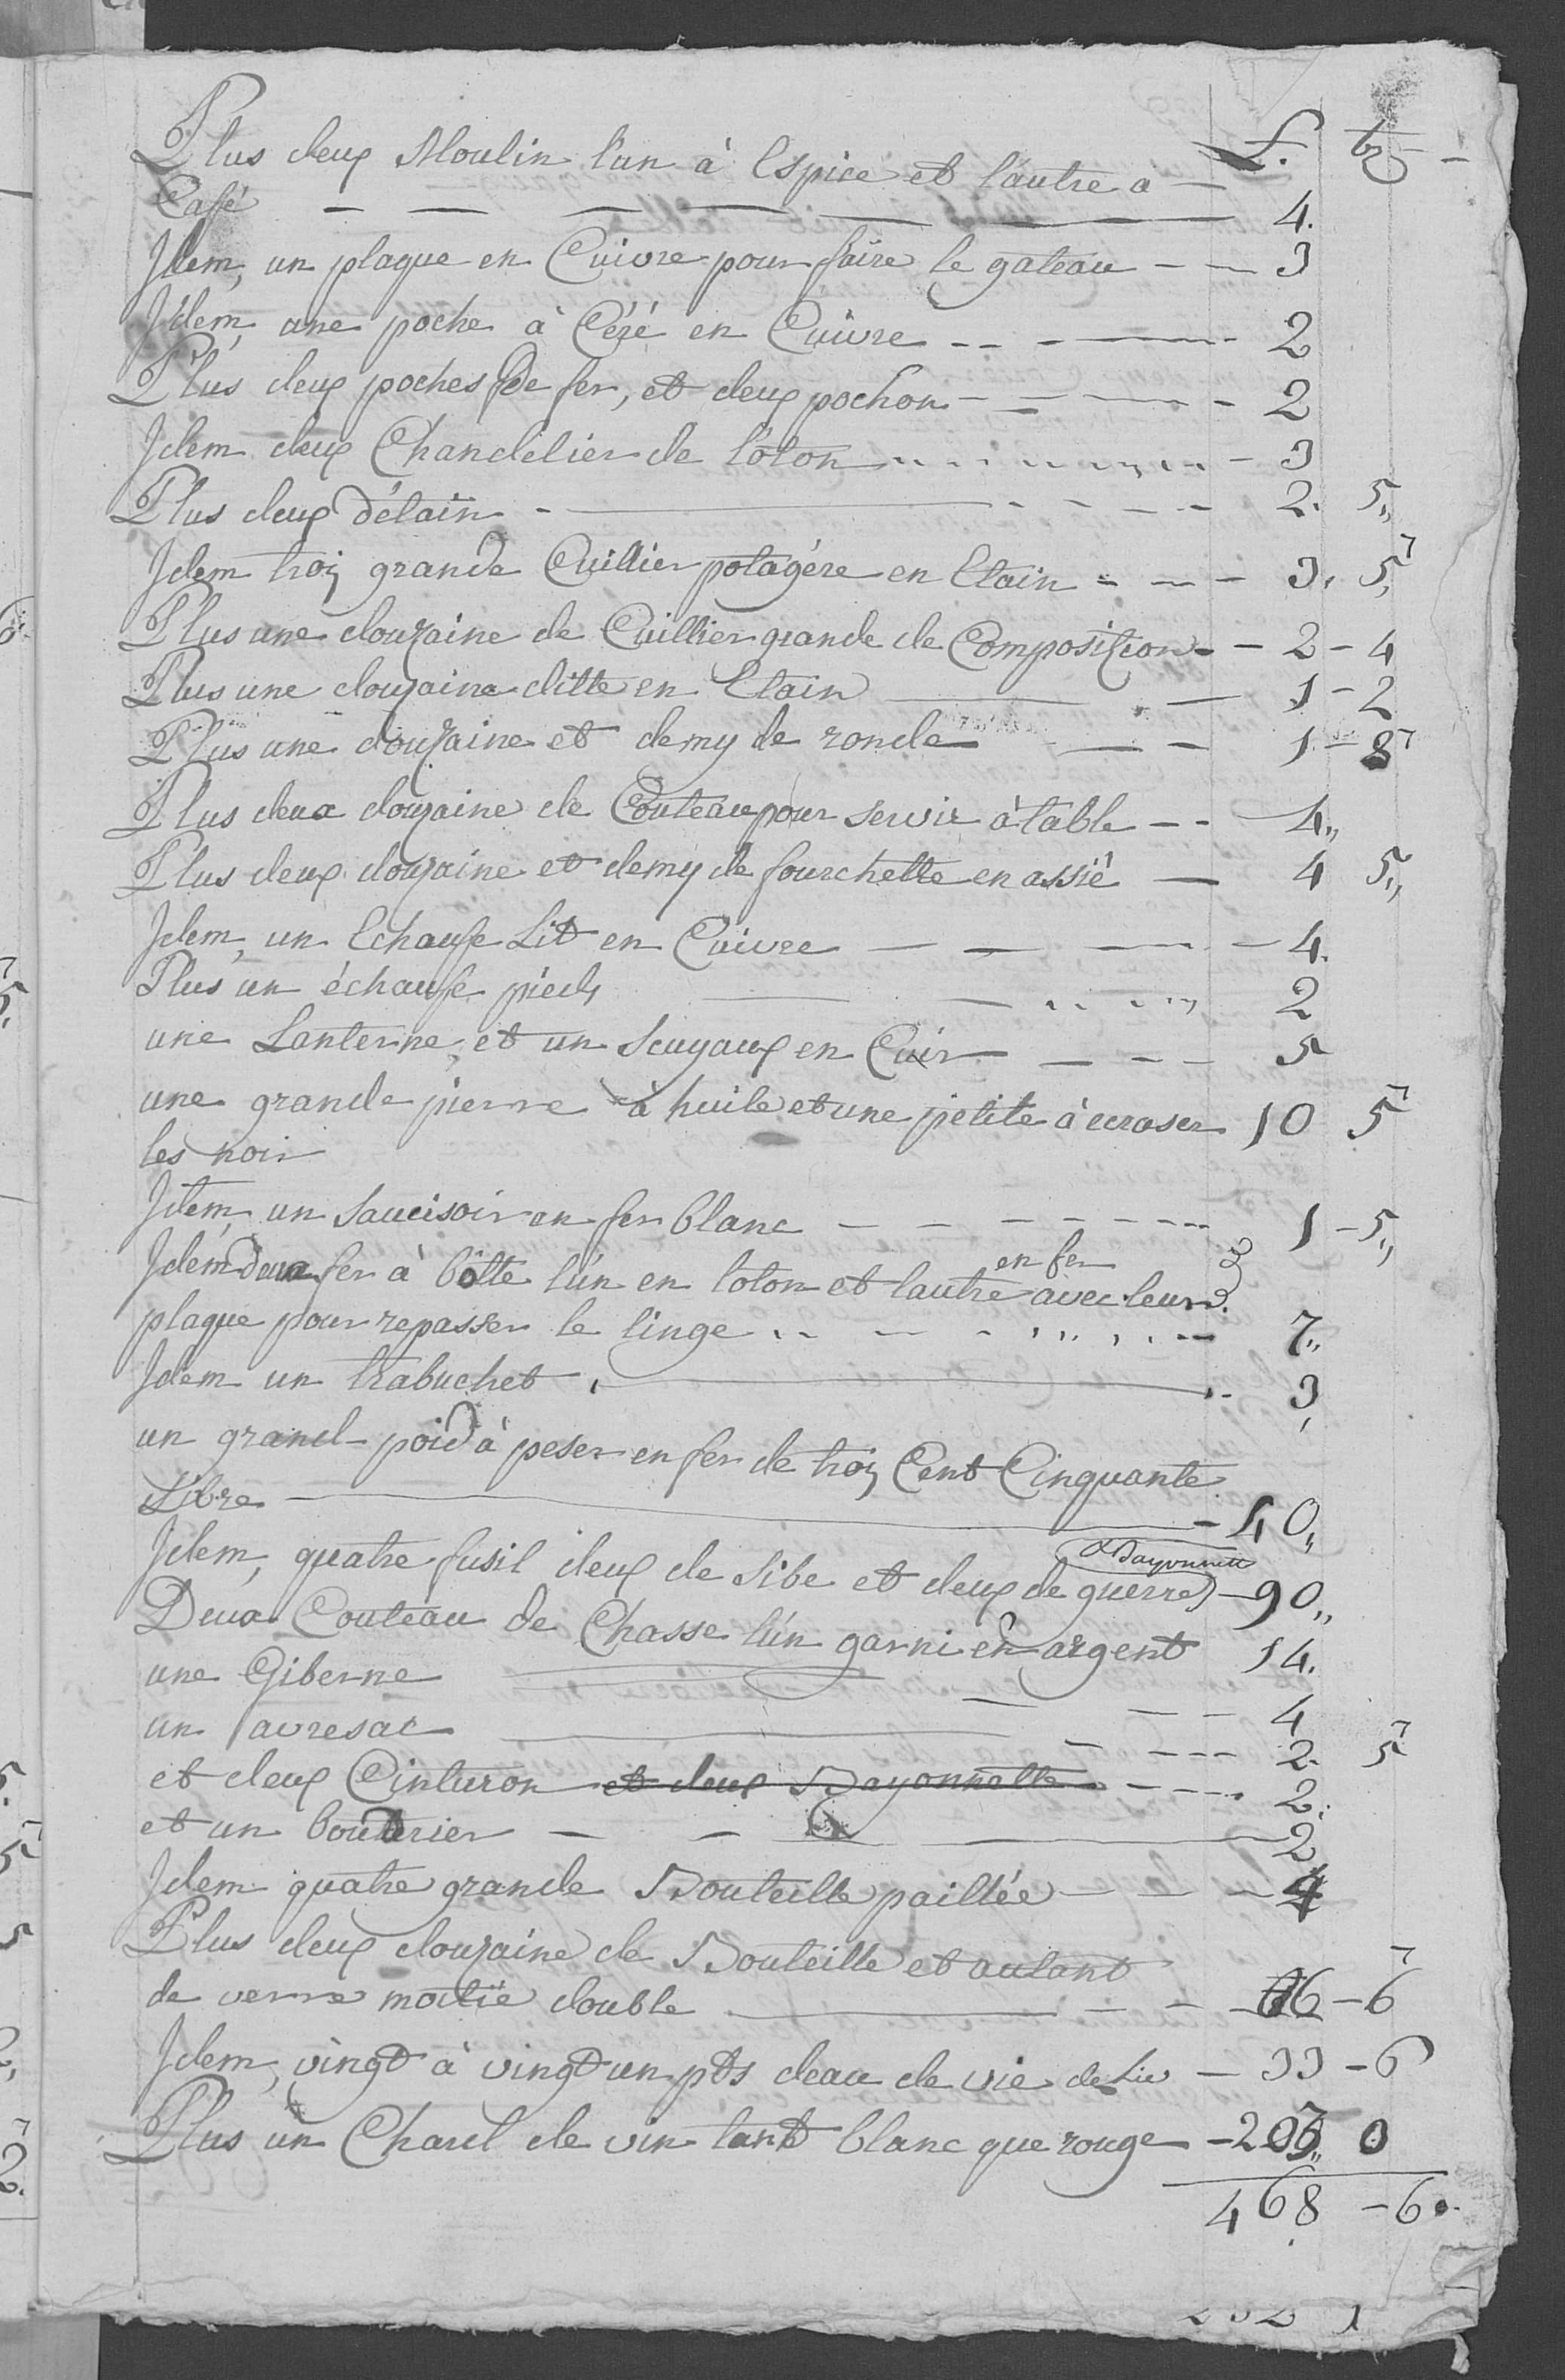 L. bz
Plus deux Moulin l'un à Espice et l'autre a
Café 4.
Jdem, un plaque en Cuivre pour faire le gateau 3
Jdem, une poche à Céré en Cuivre 2
Plus deux poches de fer, et deux pochon 2
Jdem deux Chandelier de loton 3
Plus deux d'étain 2. 5
Jdem troi grande Cuillier potagére en Etain 3. 5
Plus une douzaine de Cuillier grande de Composition 2 - 4
Plus une douzaine ditte en Etain 1 - 2
Plus une douzaine et demy de ronde 1 - 8
Plus deux douzaine de Couteau pour servir à table 4
Plus deux douzaine et demy de fourchette en assié 4 5
Jdem, un Echaufe Lit en Cuivre 4.
Plus un échaufe pieds 2
une Lanterne, et un Seuyaux en Cuir 5
une grande pierre à huile et une petite à ecraser 10 5
les noir
Jdem, un Saucisoir en fer blanc 1 - 5
en fer
Jdem deux fer à bôtte l'un en loton et lautre avec leur
plaque pour repasser le linge 7
Jdem un trabuchet 3
un grand poid à peser en fer de troi Cent Cinquante
Libre 40
a Bayonnette
Jdem, quatre fusil deux de Sibe et deux de guerre 90
Deux Couteau de Chasse l'un garni en argent 14.
une Giberne 4
un avresac 2. 5
et deux Cinturon et deux Bayonnette 2.
et un boudrier 2
Jdem quatre grande Bouteille paillée 4
Plus deux douzaine de Bouteille et autant
de verre moitié double 6 - 6
Jdem, vingt à vingt un pts deau de vie de Lie 33 - 6
Plus un Charel de vin tant blanc que rouge 207 0
468 - 6